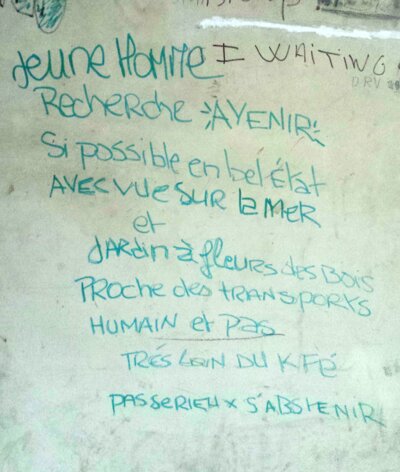 Jeune Homme I WAITING
DRV
Recherche AVENIR
Si possible en bel État
AVEC VUE SUR la MER
et
JARDIN à fleurs des Bois
PROCHE des TRANSPORTS
HUMAIN et PAS
TRÉS LOIN DU KFé
PASSERIEUX S'ABSTENIR